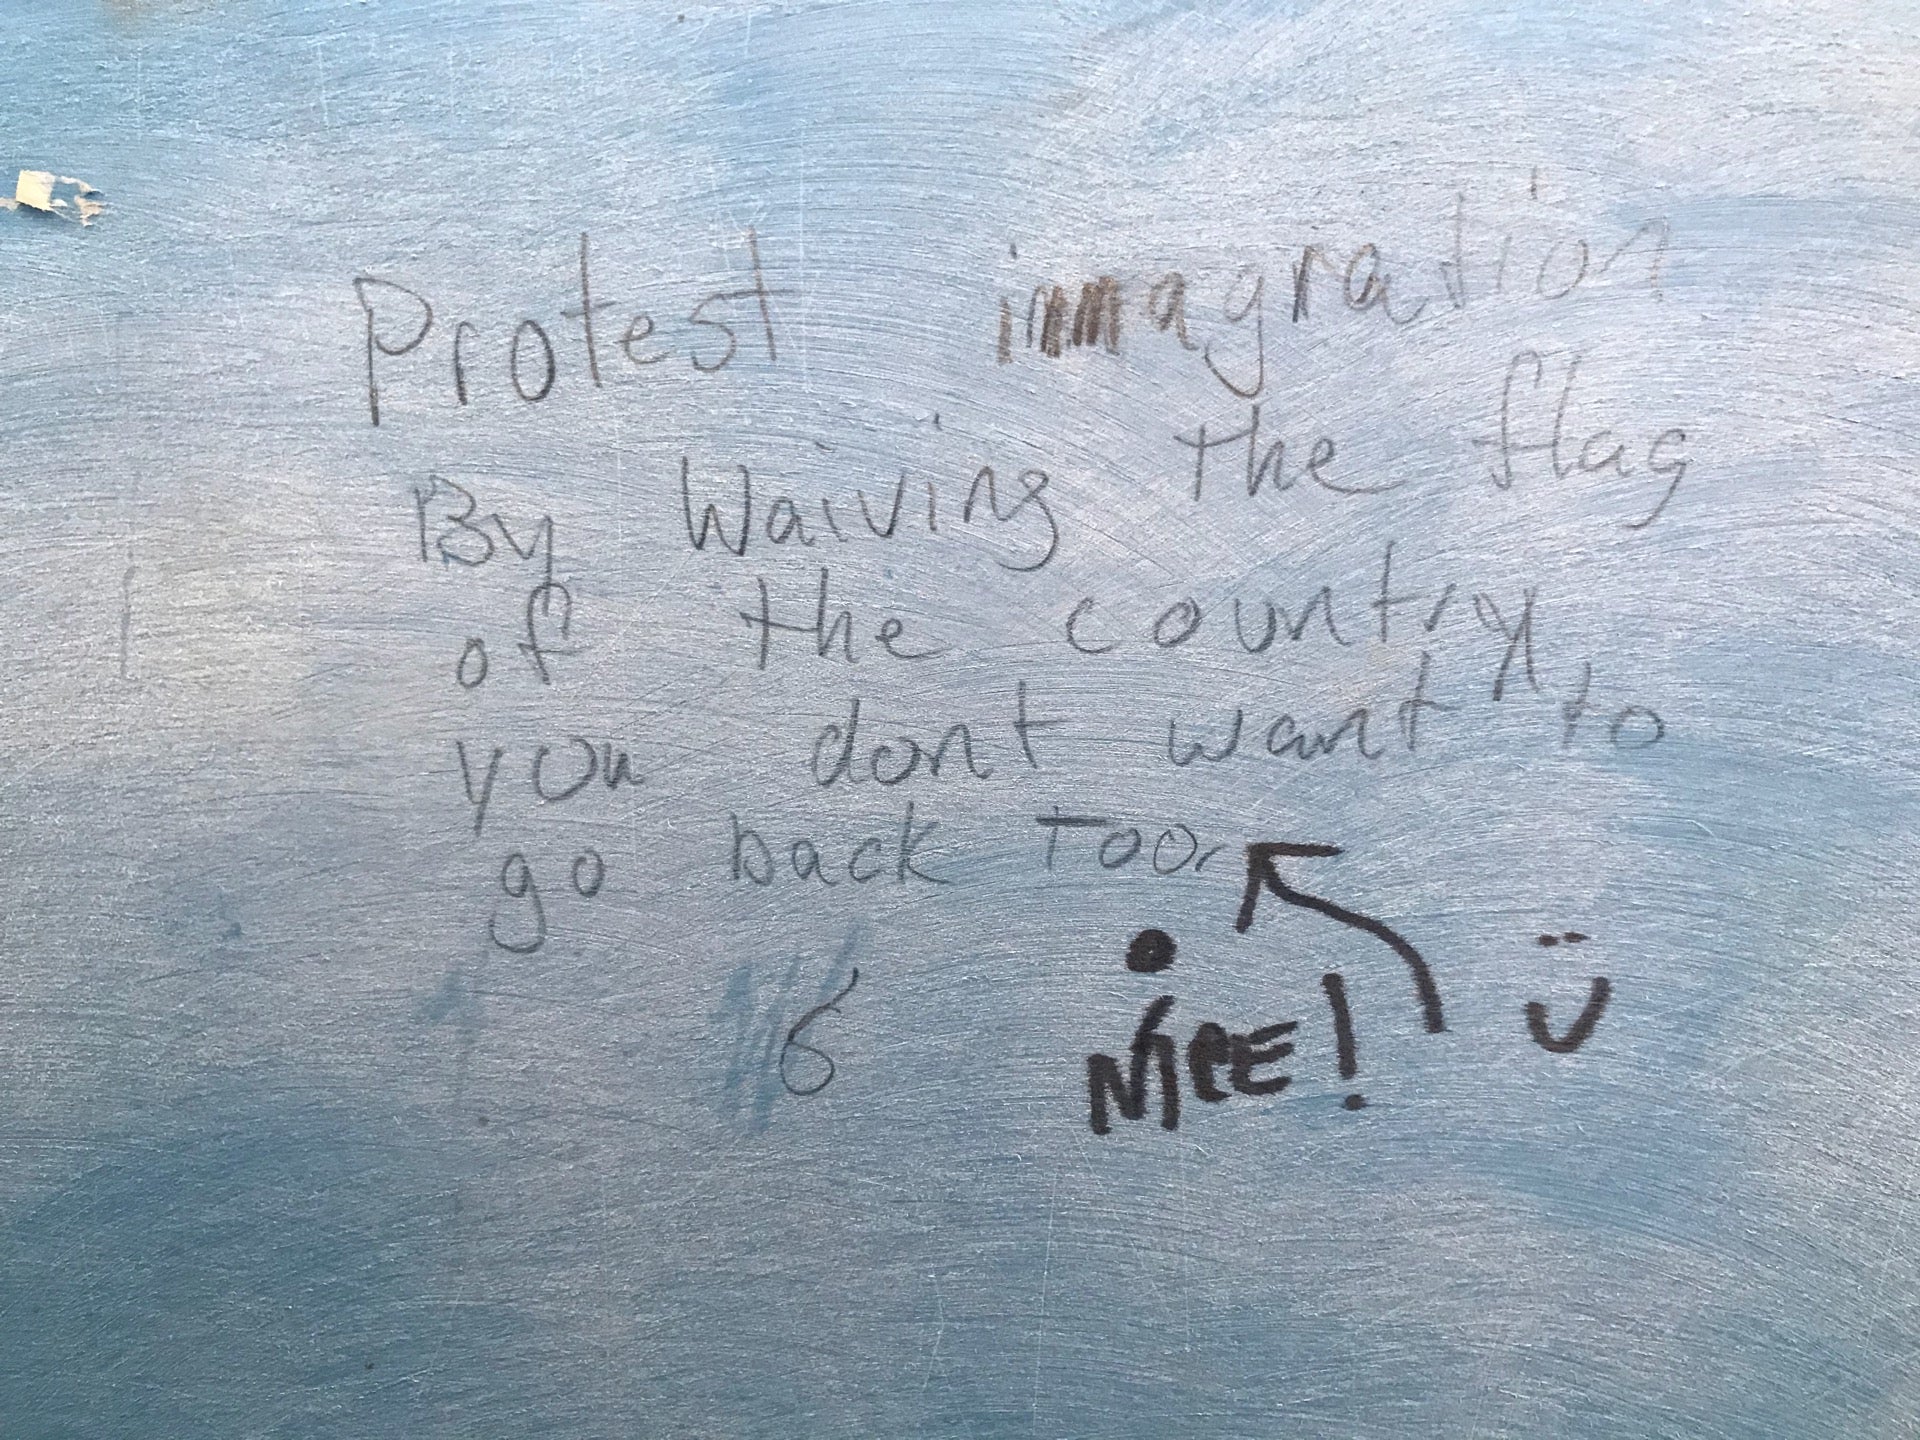 Protest immagration
By Waiving the flag
of the country
you dont want to
go back too.
6
NICE!